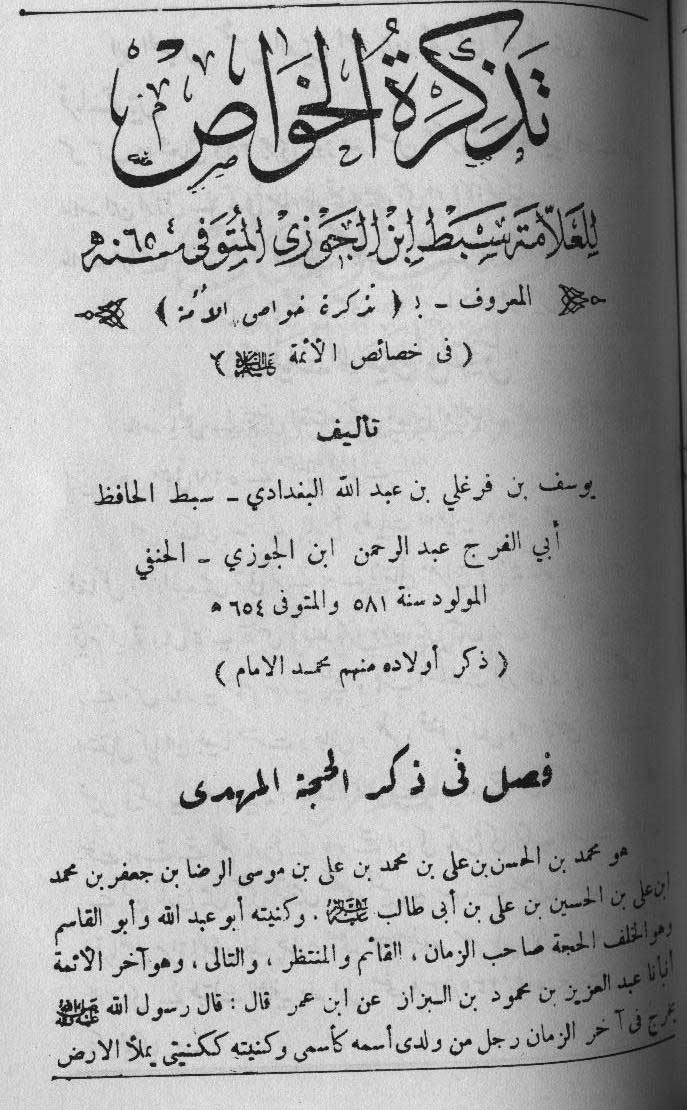 تذكرة الخواص
للعلامة سبط ابن الجوزي المتوفى سنه ٦٥٤ ه
المعروف ـ بـ ( تذكرة خواص الأمة )
( فى خصائص الأئمة عليهم السلام )
تأليف
يوسف بن فرغلي بن عبد الله البغدادي ـ سبط الحافظ
أبي الفرج عبد الرحمن ابن الجوزي ـ الحنفي
المولود سنة ٥٨١ والمتوفى ٦٥٤ ه
( ذكر أولاده منهم محمد الامام )
فصل فى ذكر الحجة المهدى
هو محمد بن الحسن بن على بن محمد بن على بن موسى الرضا بن جعفر بن محمد
ابن على بن الحسين بن على بن أبى طالب عليه السلام . وكنيته أبو عبد الله وأبو القاسم
وهو الخلف الحجة صاحب الزمان ، القائم والمنتظر ، والتالى ، وهو آخر الأئمة
أنبأنا عبد العزيز بن محمود بن البزاز عن ابن عمر قال : قال رسول الله ﷺ
يخرج فى آخر الزمان رجل من ولدى أسمه كأسمى وكنيته ككنيتى يملأ الارض